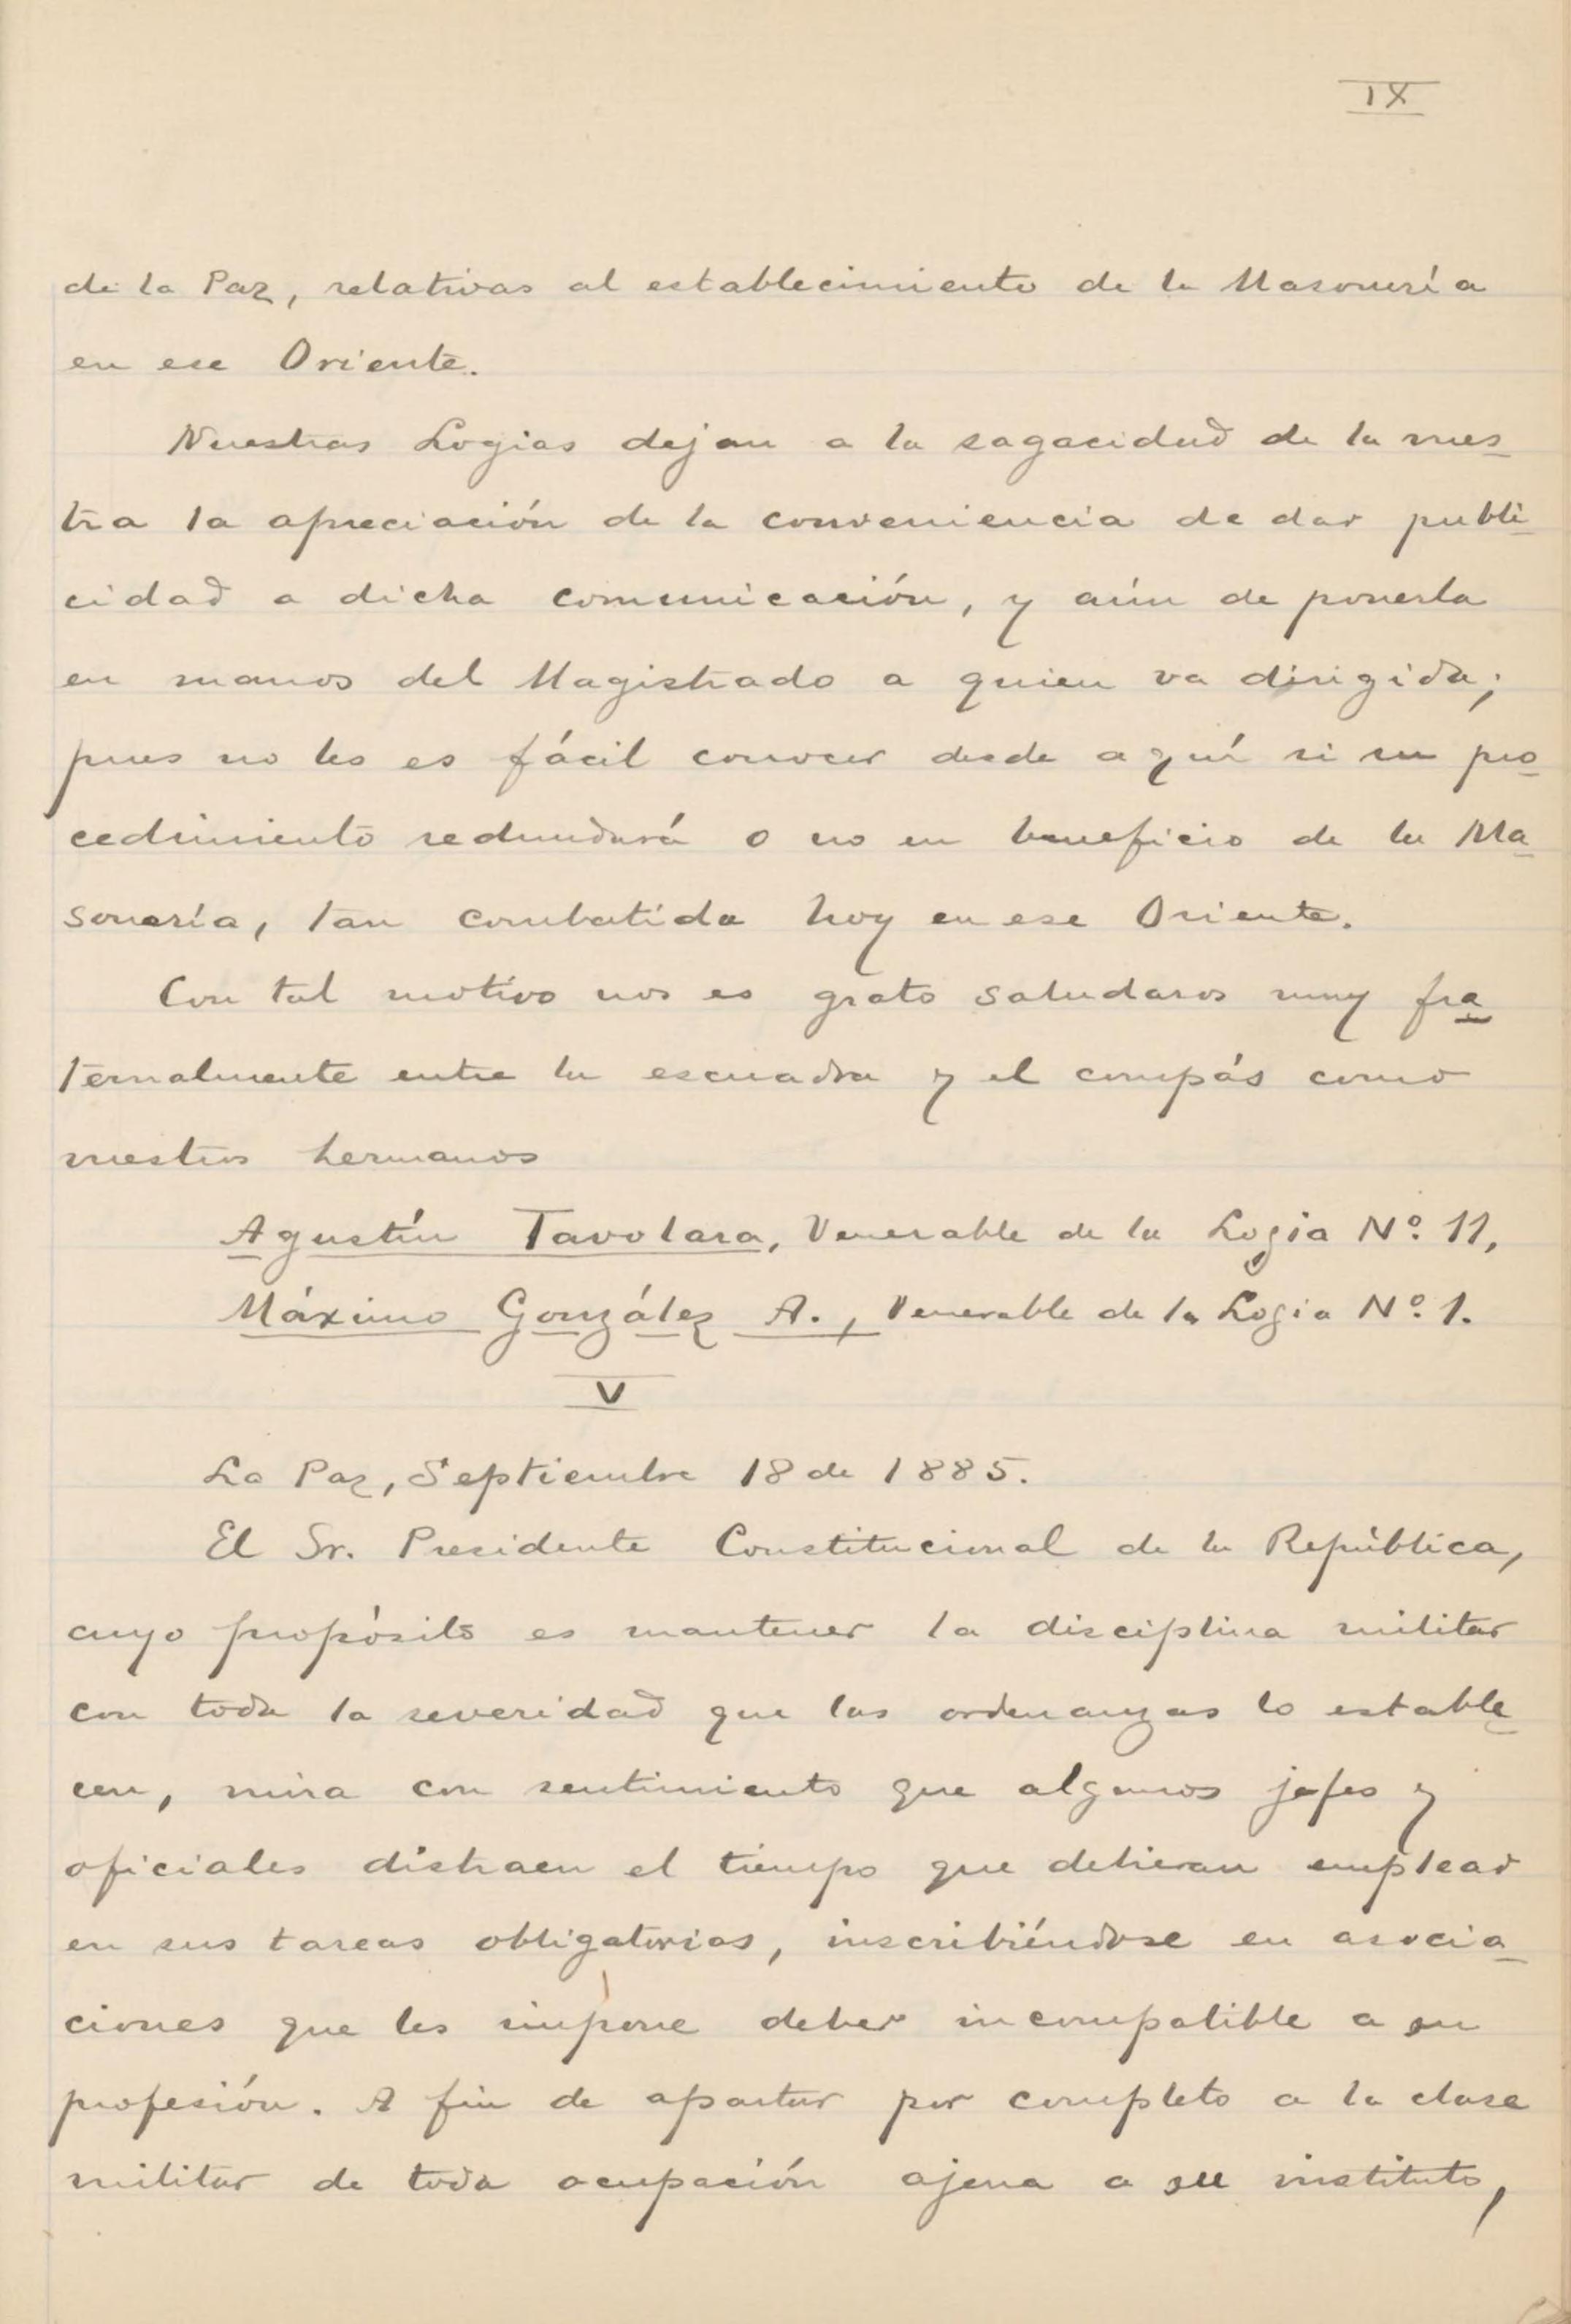 IX
de la Paz, relativas al establecimiento de la Masonería
en ese Oriente.
Nuestras Logias dejan a la sagacidad de la vues-
tra la apreciación de la conveniencia de dar publi-
cidad a dicha comunicación, y aún de ponerla
en manos del Magistrado a quien va dirigida;
pues no les es fácil conocer desde aquí si su pro-
cedimiento redundará o no en beneficio de la Ma-
sonería, tan combatida hoy en ese Oriente.
Con tal motivo nos es grato saludaros muy fra-
ternalmente entre la escuadra y el compás como
vuestros hermanos
Agustín Tavolara, Venerable de la Logia Nº 11,
Máximo González A., Venerable de la Logia Nº 1.
V
La Paz, Septiembre 18 de 1885.
El Sr. Presidente Constitucional de la República,
cuyo propósito es mantener la disciplina militar
con toda la severidad que las ordenanzas lo estable-
cen, mira con sentimiento que algunos jefes y
oficiales distraen el tiempo que debieran emplear
en sus tareas obligatorias, inscribiéndose en asocia-
ciones que les impone deber incompatible a su
profesión. A fin de apartar por completo a la clase
militar de toda ocupación ajena a su instituto,